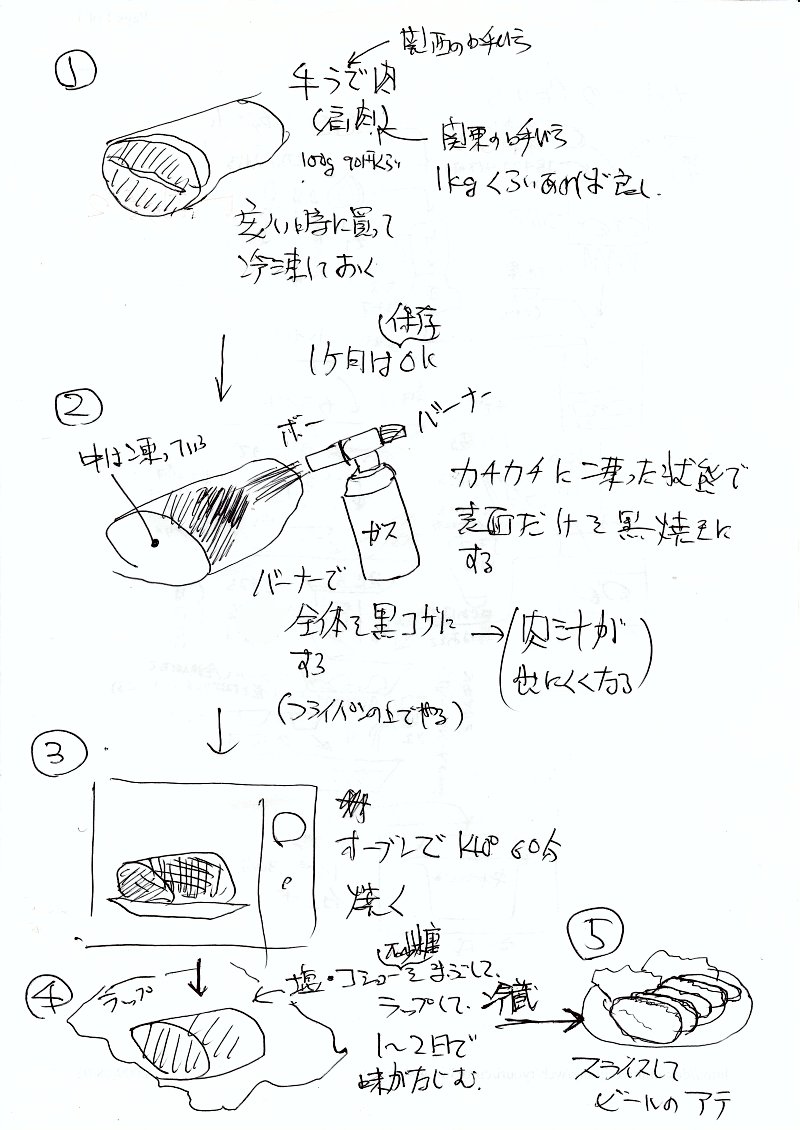 ①
関西の呼び方
牛うで肉
(肩肉)
100g 90円くらい
関東の呼び方
1kgくらいあれば良し.
安い時に買って
冷凍しておく
保存
1ケ月はOK
②
中は凍っている
ボー
バーナー
ガス
カチカチに凍った状態で
表面だけを黒焼きに
する
バーナーで
全体を黒コゲに
する
(フライパンの上でやる)
→(肉汁が
出にくくなる)
③
オーブンで140° 60分
焼く
④
ラップ
砂糖
塩・コショーをまぶして、
ラップして、冷蔵
1〜2日で
味がなじむ.
⑤
スライスして
ビールのアテ